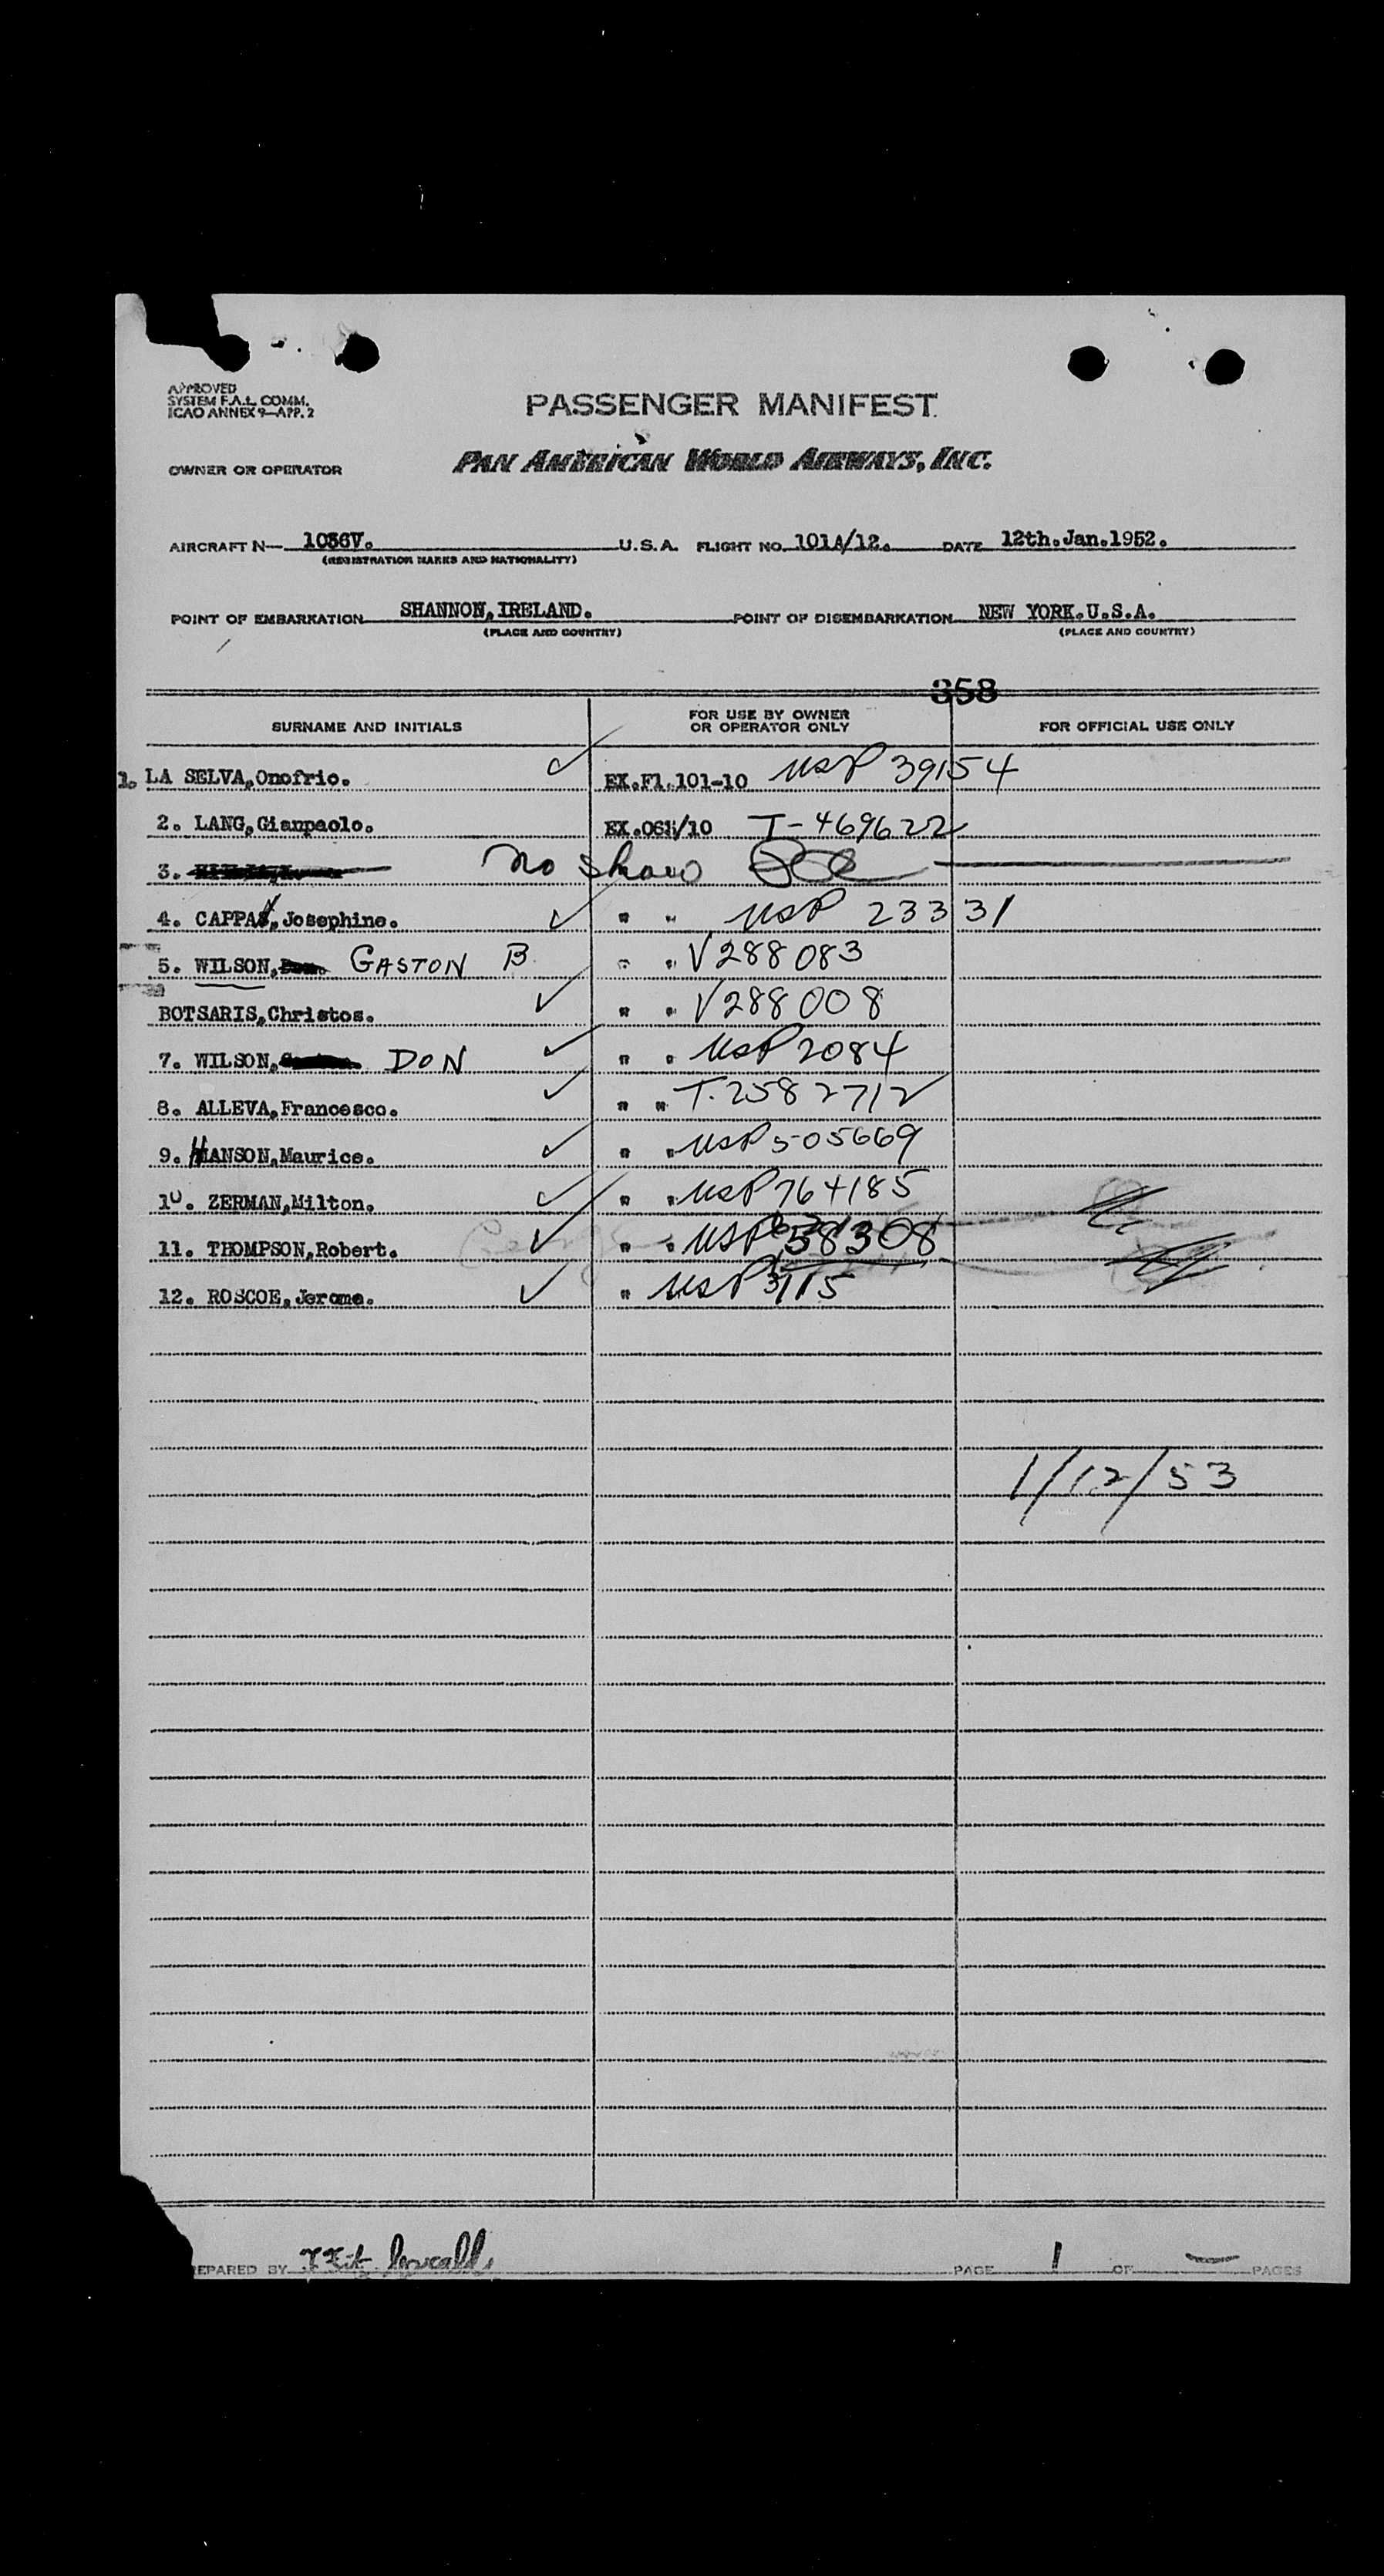 APPROVED
SYSTEM F.A.L. COMM.
ICAO ANNEX 9—APP. 2
PASSENGER MANIFEST
OWNER OR OPERATOR PAN AMERICAN WORLD AIRWAYS, INC.
AIRCRAFT N— 1036V. U.S.A. FLIGHT NO. 101A/12. DATE 12th.Jan.1952.
(REGISTRATION MARKS AND NATIONALITY)
POINT OF EMBARKATION SHANNON,IRELAND. POINT OF DISEMBARKATION NEW YORK.U.S.A.
(PLACE AND COUNTRY) (PLACE AND COUNTRY)
358
SURNAME AND INITIALS FOR USE BY OWNER OR OPERATOR ONLY FOR OFFICIAL USE ONLY
1. LA SELVA,Onofrio. EX.Fl.101-10 USP 39154
2. LANG,Gianpaolo. EX.065/10 T-469622
3. No Show
4. CAPPAS,Josephine. " " USP 23331
5. WILSON, GASTON B. " " V288083
BOTSARIS,Christos. " " V288008
7. WILSON, DON " " USP 2084
8. ALLEVA,Francesco. " " T.2582712
9. HANSON,Maurice. " " USP 505669
10. ZERMAN,Milton. " " USP 764185
11. THOMPSON,Robert. " " USP 58308
12. ROSCOE,Jerome. " USP 3115
1/12/53
EPARED BY PAGE 1 OF PAGES